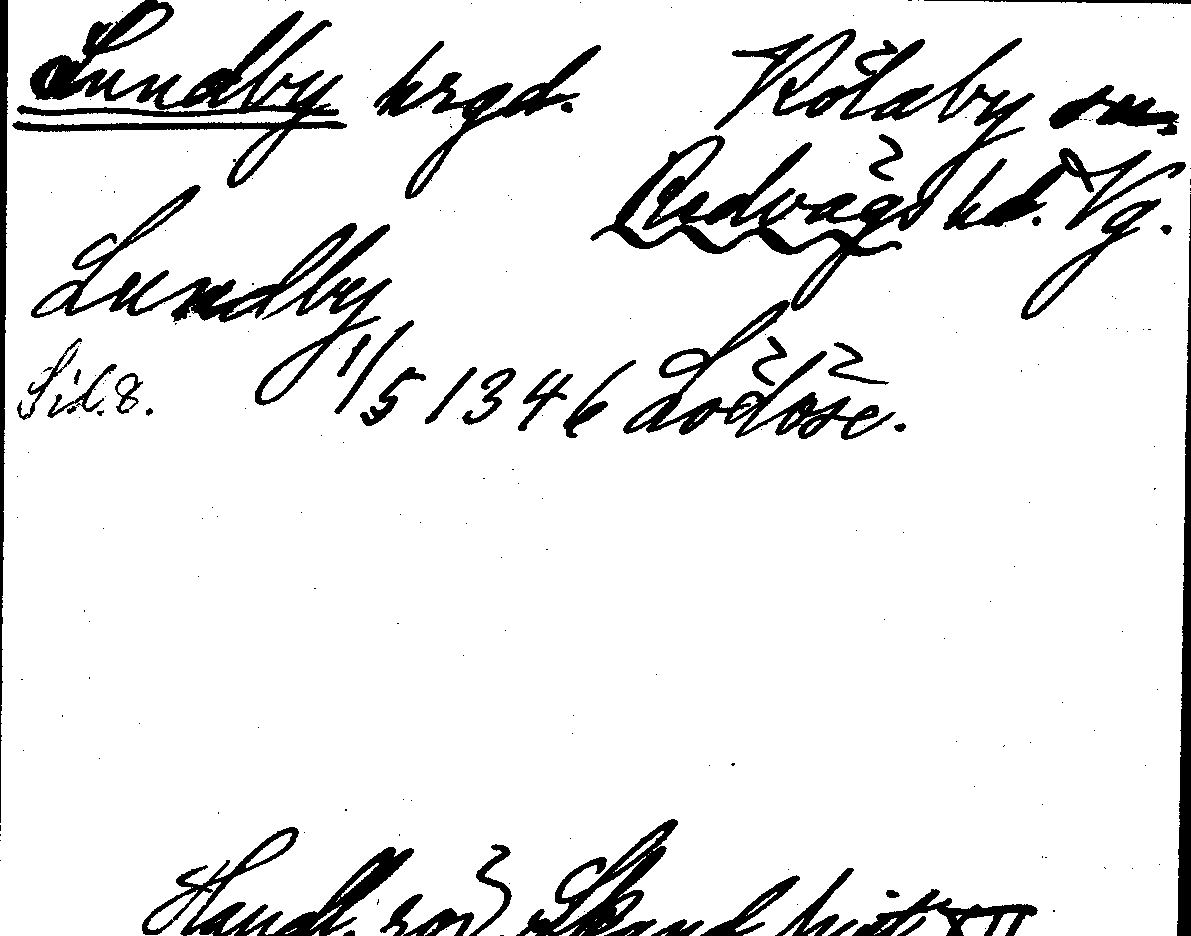 Lundby hrgd. Kölaby sn.
Redvägs hd. Vg.
Lundby
Sid. 8. 1/5 1346 Lödöse.
Handl. rör. Skand. hist. XII